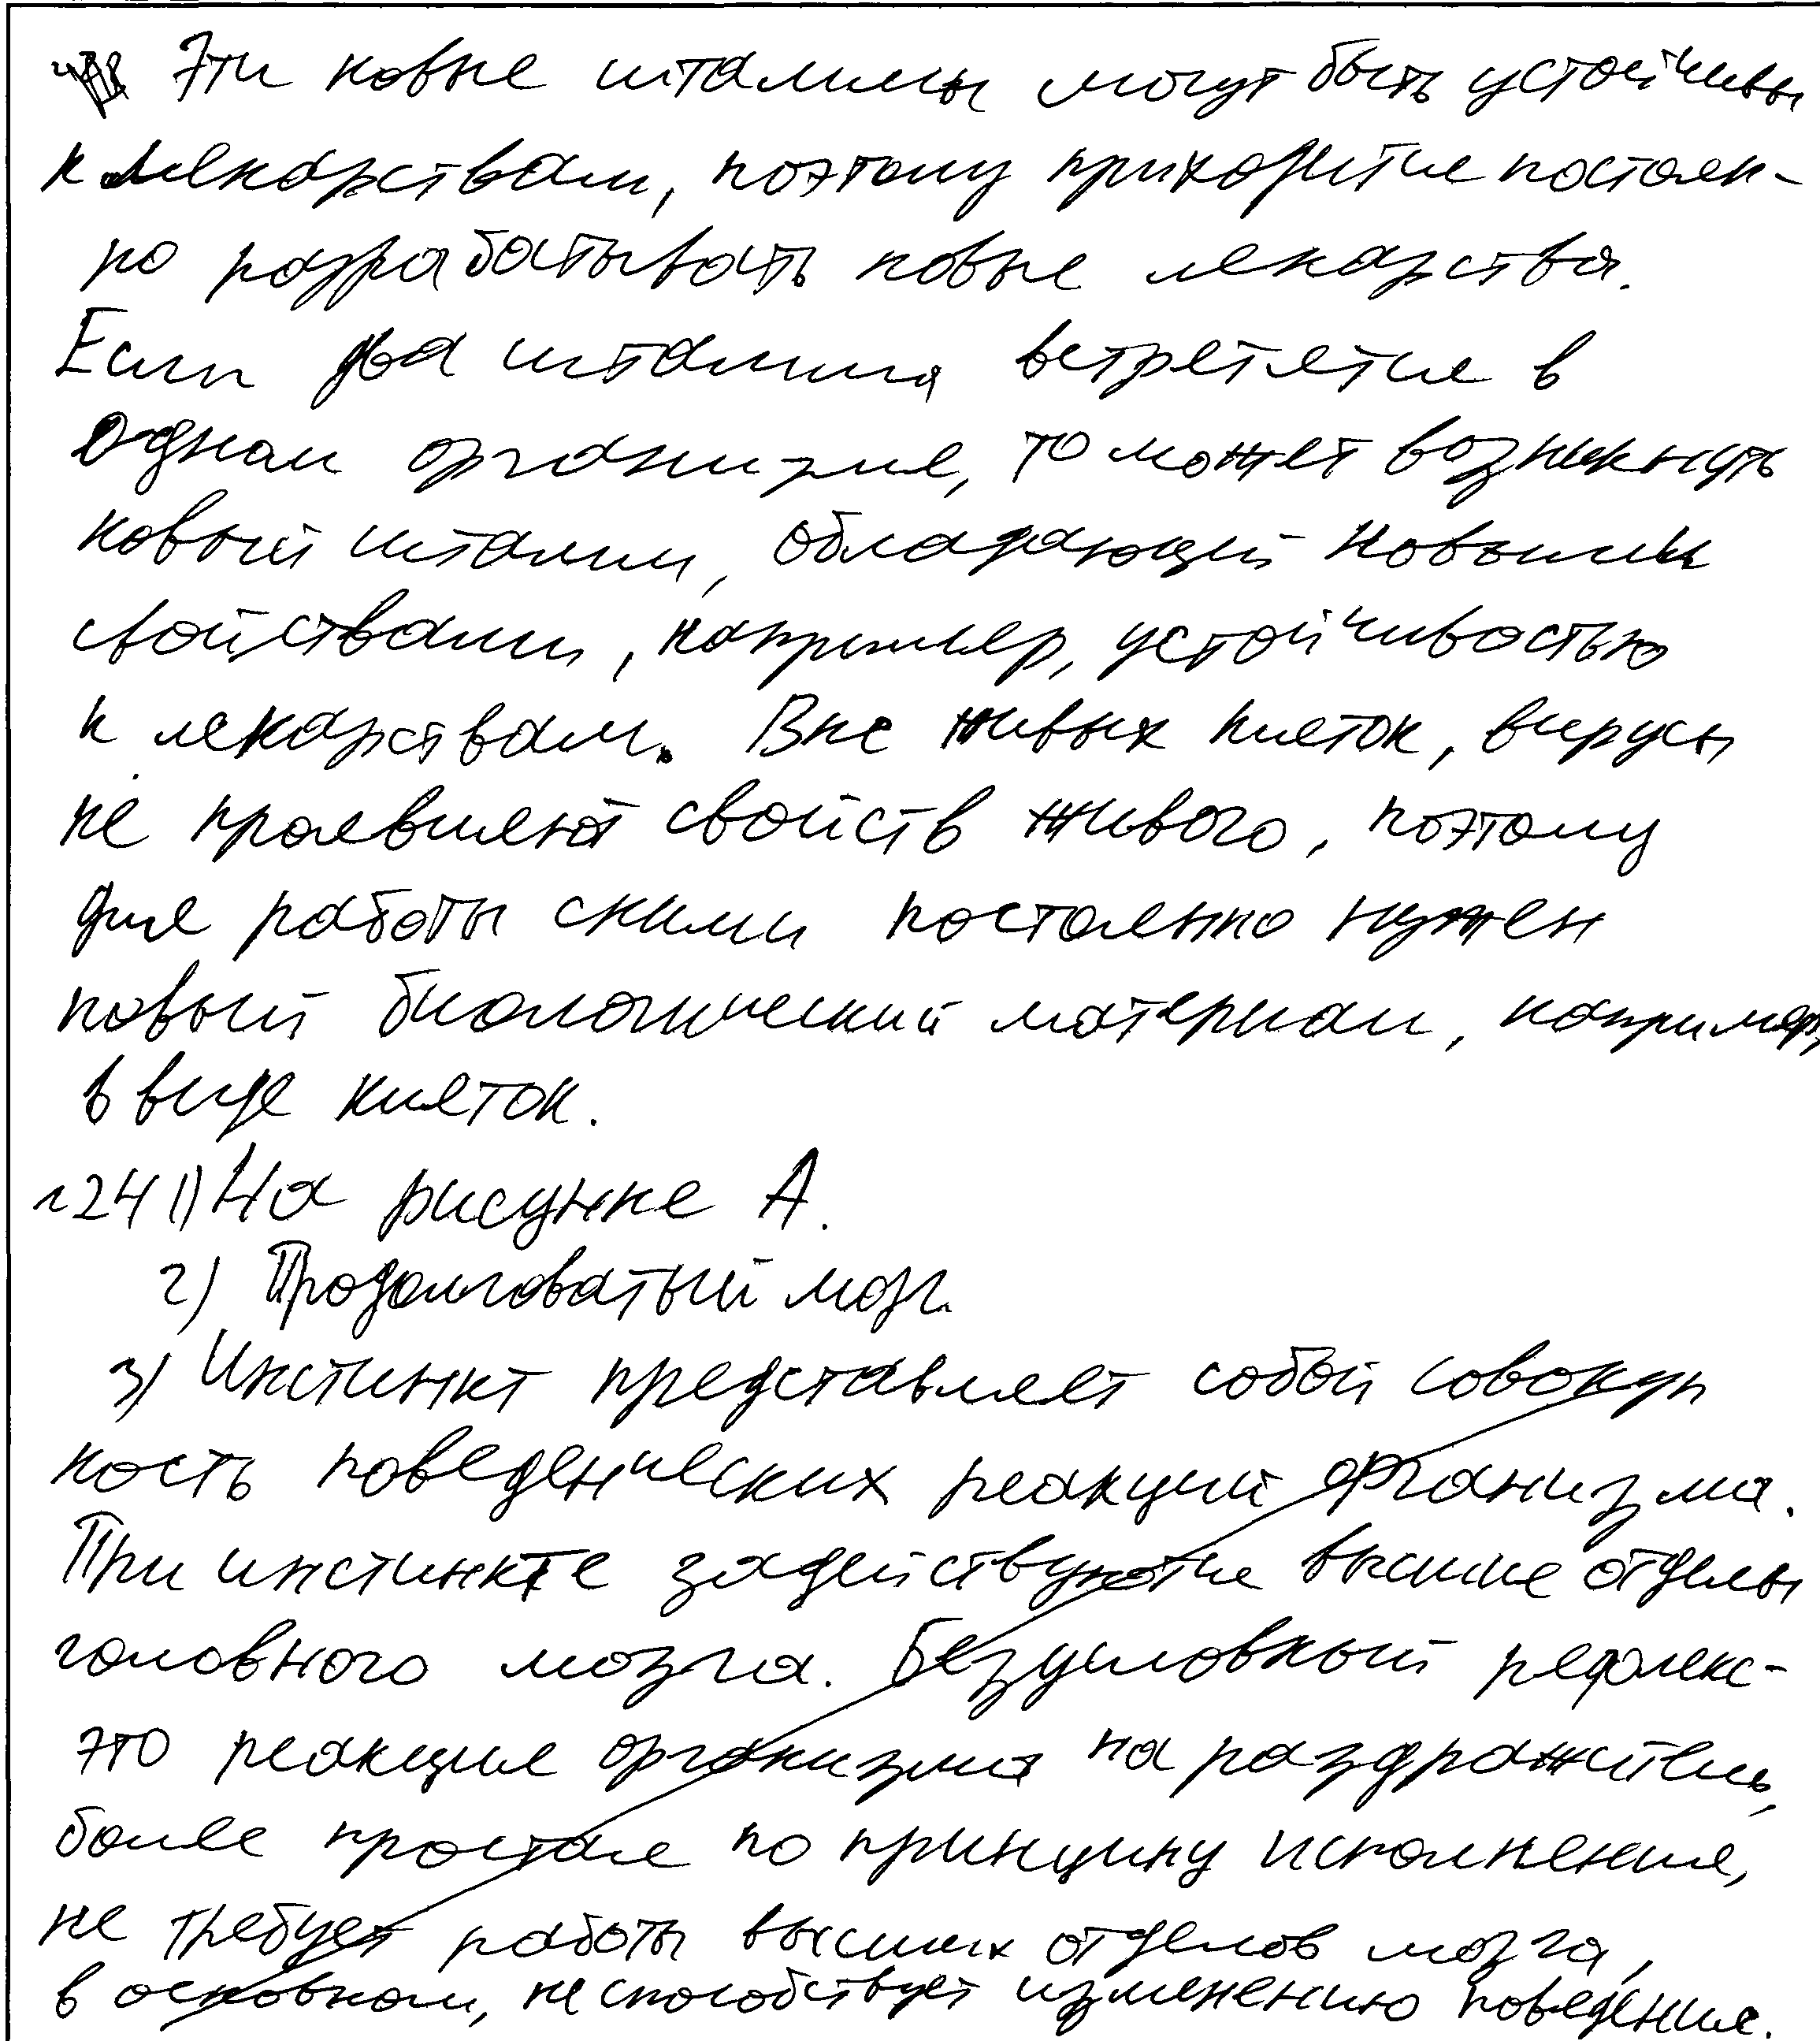 Эти новые штаммы могут быть устойчивы
к лекарствам, поэтому приходится постоян-
но разрабатывать новые лекарства.
Если два штамма встретятся в
одном организме, то может возникнуть
новый штамм, обладающий новыми
свойствами, например, устойчивостью
к лекарствам. Вне живых клеток, вирусы
не проявляют свойств живого, поэтому
для работы с ними постоянно нужен
новый биологический материал, например,
в виде клеток.
№24 1) На рисунке А.
2) Продолговатый мозг.
3) Инстинкт представляет собой совокуп
ность поведенческих реакций организма.
При инстинкте задействуются высшие отделы
головного мозга. Безусловный рефлекс-
это реакция организма на раздражитель,
более простая по принципу исполнения,
не требует работы высших отделов мозга,
в основном, не способствует изменению поведения.